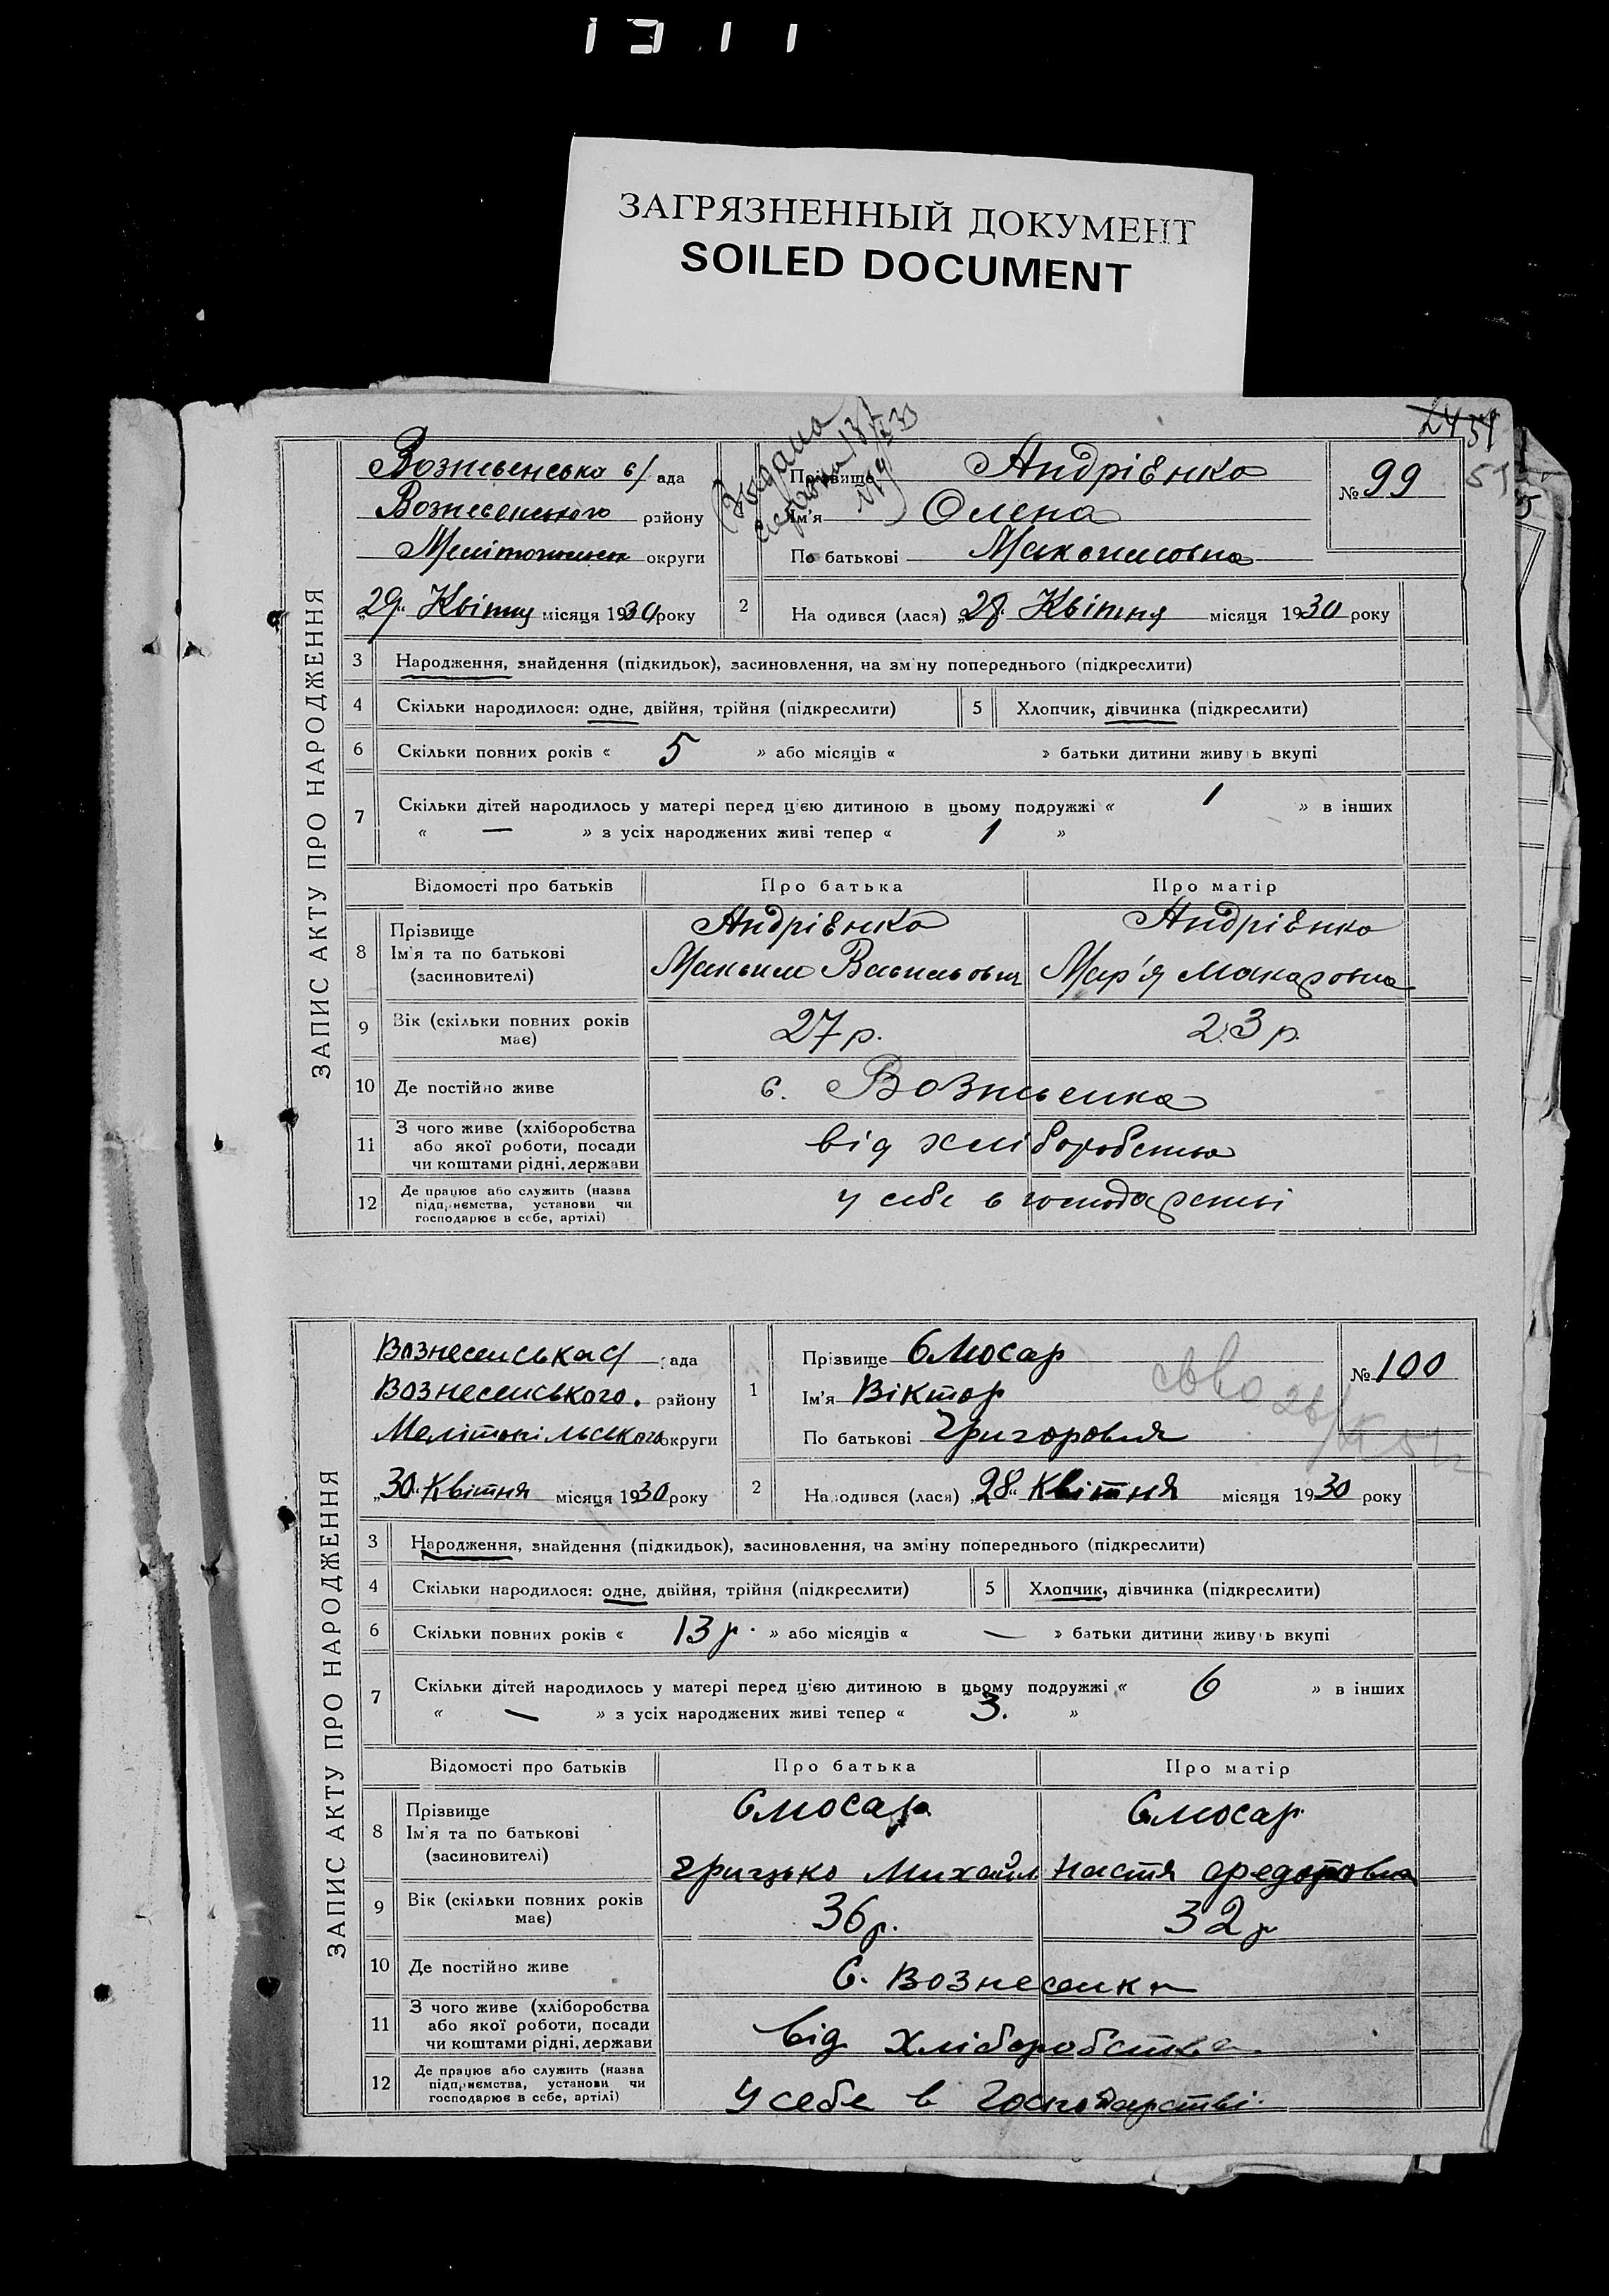 1311
ЗАГРЯЗНЕННЫЙ ДОКУМЕНТ
SOILED DOCUMENT
2451
51
ЗАПИС АКТУ ПРО НАРОДЖЕННЯ
Вознесенська с/ ада
Вознесенського району
округи
„29“ Квітня місяця 1930 року
Прізвище Андрієнко
Ім'я Олена
По батькові Максимовна
№ 99
2 На одився (лася) „28“ Квітня місяця 1930 року
3 Народження, знайдення (підкидьок), засиновлення, на зміну попереднього (підкреслити)
4 Скільки народилося: одне, двійня, трійня (підкреслити) 5 Хлопчик, дівчинка (підкреслити)
6 Скільки повних років « 5 » або місяців « » батьки дитини живуть вкупі
7 Скільки дітей народилось у матері перед цією дитиною в цьому подружжі « 1 » в інших
« — » з усіх народжених живі тепер « 1 »
Відомості про батьків Про батька Про матір
8 Прізвище Ім'я та по батькові (засиновителі) Андрієнко Андрієнко
Максим Васильович Мар'я Макаровна
9 Вік (скільки повних років має) 27 р. 23 р.
10 Де постійно живе с. Вознесенка
11 З чого живе (хліборобства або якої роботи, посади чи коштами рідні, держави від хліборобства
12 Де працює або служить (назва підприємства, установи чи господарює в себе, артілі) у себе в господарстві
ЗАПИС АКТУ ПРО НАРОДЖЕННЯ
Вознесенська с/ ада
Вознесенського району
Мелітопільського округи
„30“ Квітня місяця 1930 року
1 Прізвище Слюсар
Ім'я Віктор
По батькові Григорович
№ 100
2 На одився (лася) „28“ Квітня місяця 1930 року
3 Народження, знайдення (підкидьок), засиновлення, на зміну попереднього (підкреслити)
4 Скільки народилося: одне, двійня, трійня (підкреслити) 5 Хлопчик, дівчинка (підкреслити)
6 Скільки повних років « 13 р. » або місяців « — » батьки дитини живуть вкупі
7 Скільки дітей народилось у матері перед цією дитиною в цьому подружжі « 6 » в інших
« — » з усіх народжених живі тепер « 3. »
Відомості про батьків Про батька Про матір
8 Прізвище Ім'я та по батькові (засиновителі) Слюсар Слюсар
Грицько Михайл Настя Федотовна
9 Вік (скільки повних років має) 36 р. 32 р
10 Де постійно живе С. Вознесенка
11 З чого живе (хліборобства або якої роботи, посади чи коштами рідні, держави від хліборобства
12 Де працює або служить (назва підприємства, установи чи господарює в себе, артілі) У себе в господарстві.